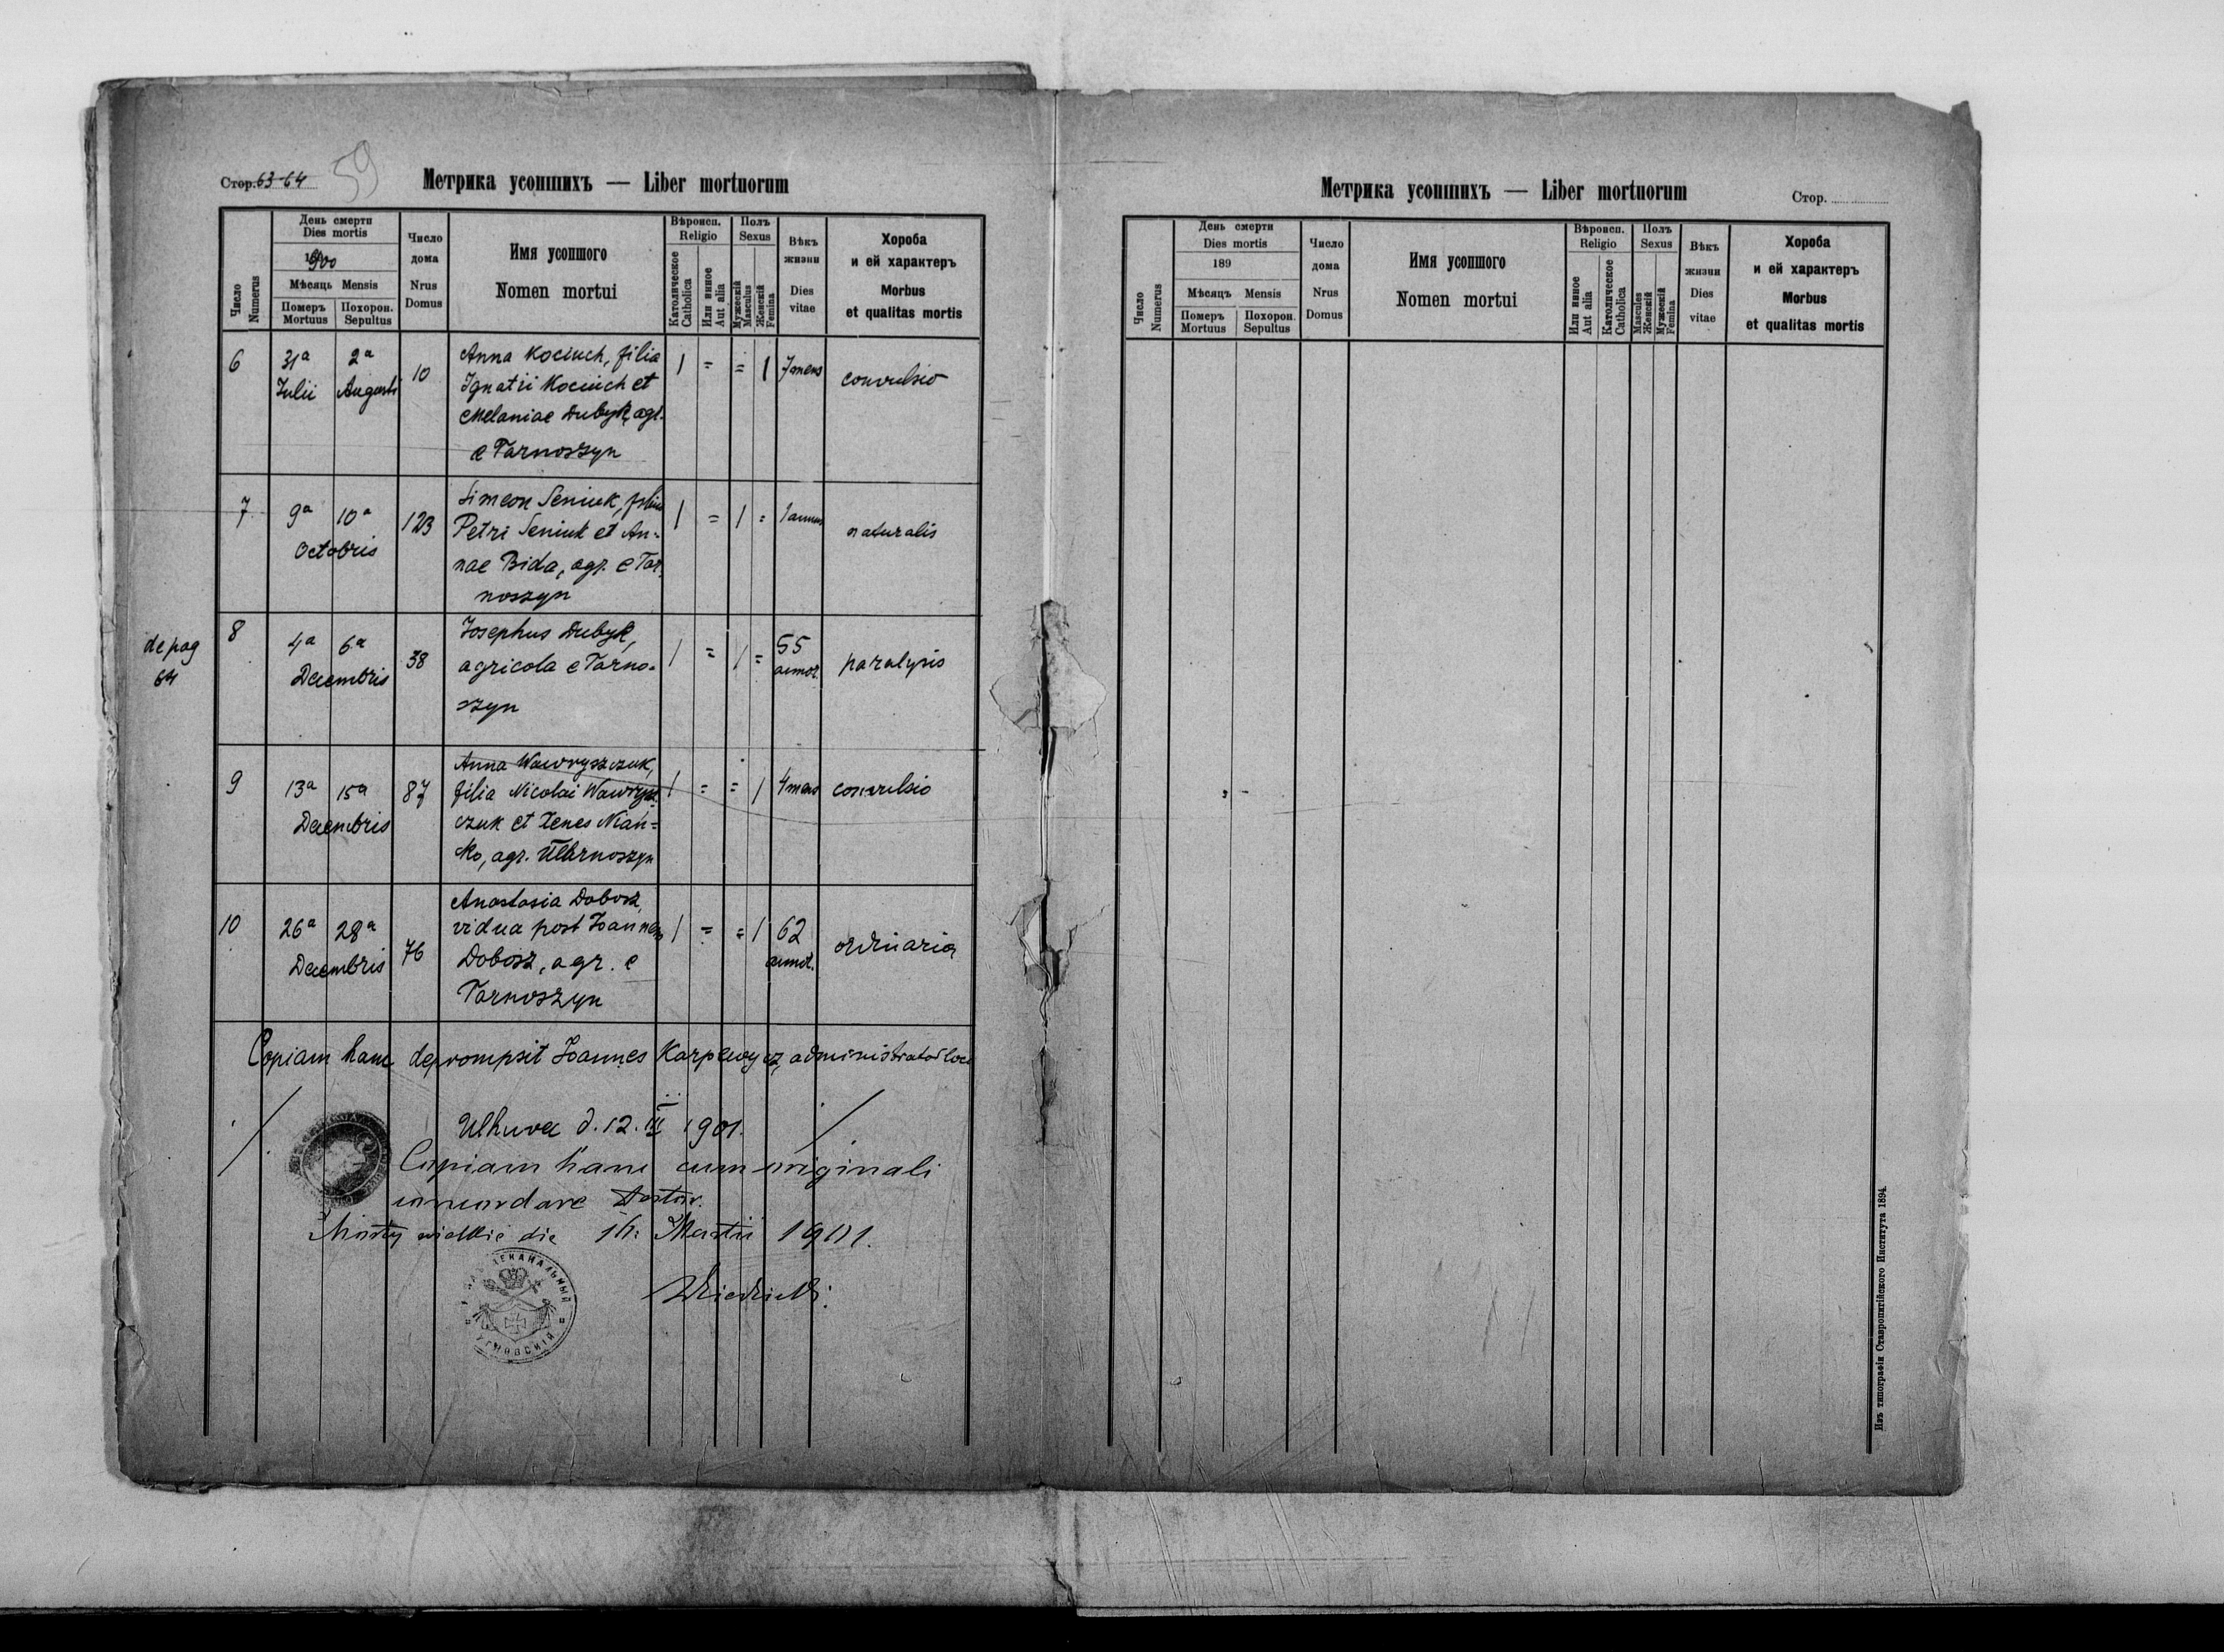 Стор. 63-64
59
Метрика усопшихъ — Liber mortuorum
Число Numerus
День смерти
Dies mortis
1900
Мѣсяць Mensis
Померъ Mortuus
Похорон. Sepultus
Число дома
Nrus Domus
Имя усопшого
Nomen mortui
Вѣроисп.
Religio
Католическое Catholica
Или инное Aut alia
Полъ
Sexus
Мужескій Masculus
Женскій Femina
Вѣкъ жизни
Dies vitae
Хороба
и ей характеръ
Morbus
et qualitas mortis
6 31a Julii 2a Augusti 10
Anna Kociuch, filia
Ignatii Kociuch et
Melaniae Dubyk, agr.
e Tarnoszyn
1 = = 1 7 mens convulsio
7 9a 10a Octobris 123
Simeon Seniuk, filius
Petri Seniuk et An=
nae Bida, agr. e Tar
noszyn
1 = 1 = 1 annus naturalis
de pag
64
8 4a 6a Decembris 38
Josephus Dubyk,
agricola e Tarno=
szyn
1 = 1 = 55 annor. paralysis
9 13a 15a Decembris 87
Anna Wawryszczuk,
filia Nicolai Wawrysz
czuk et Xenes Nian=
ko, agr. Tarnoszyn
1 = = 1 4 mens convulsio
10 26a 28a Decembris 76
Anastasia Dobosz,
vidua post Joannem
Dobosz, agr. e
Tarnoszyn
1 = = 1 62 annor. ordinaria
Copiam hanc deprompsit Joannes Karpewycz, administrator loci
Ulhuvek d. 12. III 1901.
Copiam hanc cum originali
concordare testor.
Mosty wielkie die 16: Martii 1901.
Метрика усопшихъ — Liber mortuorum
Стор.
Число Numerus
День смерти
Dies mortis
189
Мѣсяцъ Mensis
Померъ Mortuus
Похорон. Sepultus
Число дома
Nrus Domus
Имя усопшого
Nomen mortui
Вѣроисп.
Religio
Или инное Aut alia
Католическое Catholica
Полъ
Sexus
Mascules Женскій
Мужескій Femina
Вѣкъ жизни
Dies vitae
Хороба
и ей характеръ
Morbus
et qualitas mortis
Изъ типографіи Ставропигійского Института 1894.